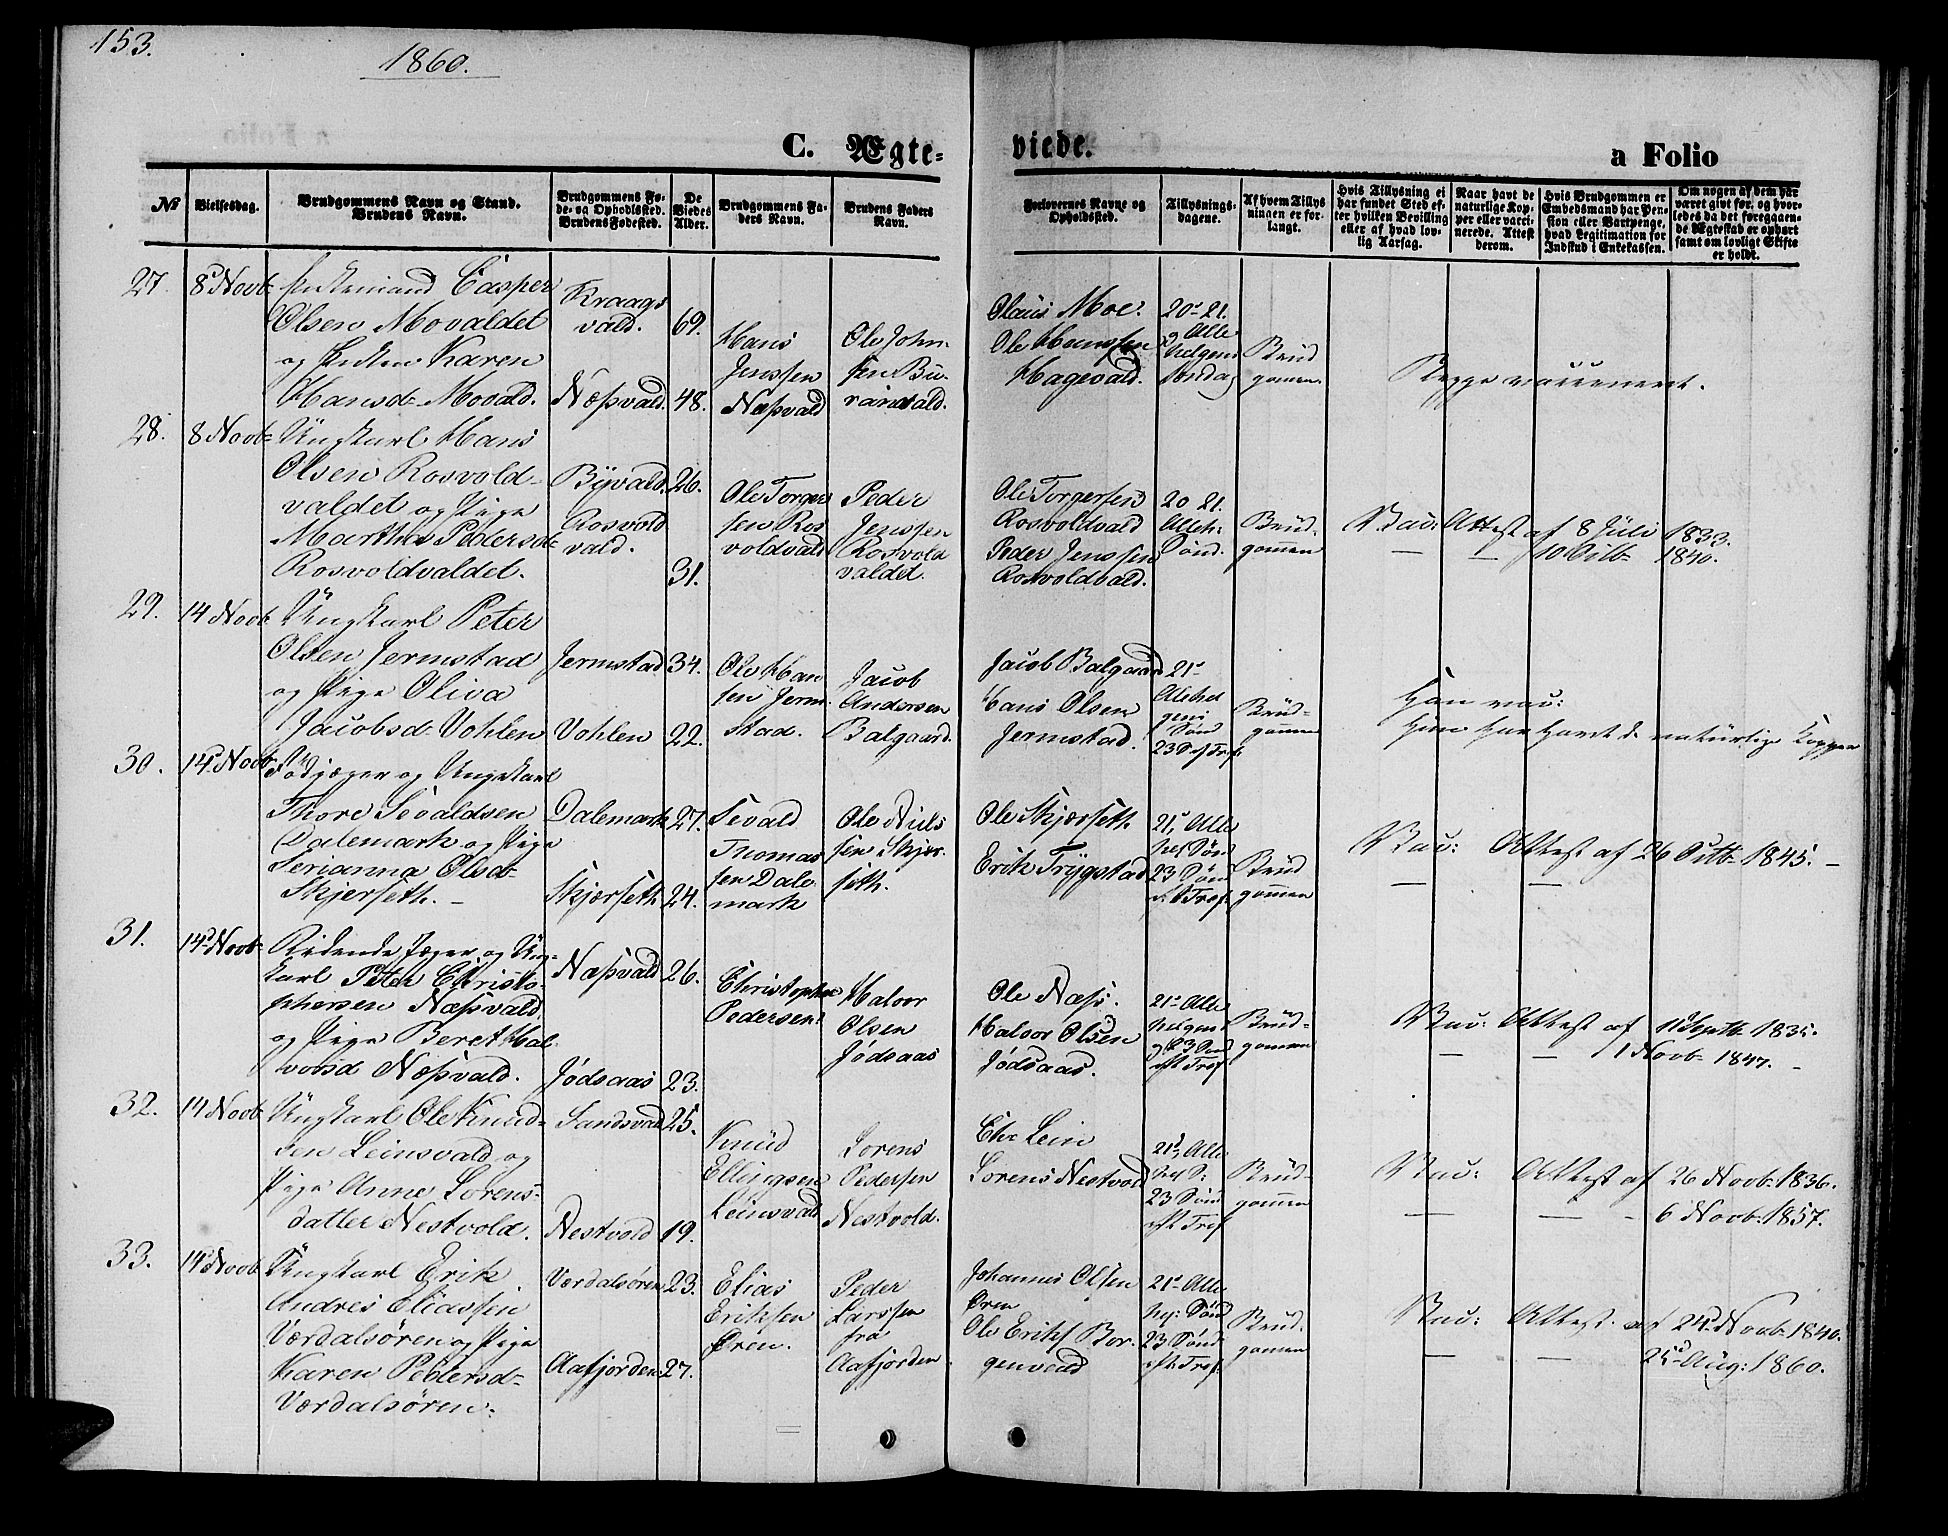 153.
1860.
C. Ægte=
viede.
a Folio
№
Vielsesdag.
Brudgommens Navn og Stand.
Brudens Navn.
Brudgommens Fø-
de- og Opholdssted.
Brudens Fødested.
De
Viedes
Alder.
Brudgommens Fa-
ders Navn.
Brudens Faders
Navn.
Forlovernes Navne og
Opholdssted.
Tillysnings-
dagene.
Af hvem Tillys-
ningen er for-
langt.
Hvis Tillysning ei
har fundet Sted ef-
ter hvilken Bevilling
eller af hvad lov-
lig Aarsag.
Naar havt de
naturlige Kop-
per eller vacci-
nerede. Attest
derom.
Hvis Brudgommen er
Embedsmand har Pen-
sion eller Vartpenge,
hvad Legitimation for
Indskud i Enkekassen.
Om nogen af dem har
været givt før, og hvor-
ledes da det foregaaen-
de Ægteskab er ophørt
samt om lovligt Skifte
er holdt.
27. 8 Novb.
Enkemand Casper
Olsen Movaldet
og Enken Karen
Hansd. Movald.
Kraags
vald.
Næssvald.
69.
48.
Hans
Jenssen
Næssvald
Ole John-
sen Bu-
randvald.
Olaus Moe.
Ole Hanssen
Hagevald.
20-21.
Alle
helgens
Søndag
Brud
gommen.
Begge vaccineret.
28. 8 Novb.
Ungkarl Hans
Olsen Rosvold-
valdet og Pige
Martha Pedersd.
Rosvoldvaldet.
Byvald.
Rosvold
vald.
26.
31.
Ole Torger
sen Ros
voldvald
Peder
Jenssen
Rosvold
valdet.
Ole Torgersen
Rosvoldvald
Peder Jenssen
Rosvoldvald.
20 21.
Alleh.
Sønd.
Brud-
gommen
Vac: Attest af 8 Juli 1833.
— — 10 Octb. 1840.
29. 14 Novb.
Ungkarl Peter
Olsen Jermstad
og Pige Oliva
Jacobsd. Vohlen
Jermstad
Vohlen
34.
22.
Ole Han
sen Jerm-
stad.
Jacob
Andersen
Balgaard.
Jacob Balgaard
Hans Olsen
Jermstad.
21
Allehel
gens
Sønd
23 S. e. Tref.
Brud-
gommen
Han vac:
Hun har havt de naturlige Kopper
30. 14 Novb.
Fodjæger og Ungkarl
Thore Sevaldsen
Dalemark og Pige
Serianna Olsd.
Skjerseth. —
Dalemark
Skjerseth
27.
24.
Sevald
Thomas
sen Dale
mark
Ole Niels
sen Skjer-
seth.
Ole Skjerseth
Erik Trygstad
21, Alle
hel Sønd
23 Sønd
e. Tref.
Brud
gommen
Vac: Attest af 26 Octb. 1845. —
— —
31. 14 Novb.
Ridende Jæger og Ung-
karl Peter Christo-
phersen Næssvald
og Pige Beret Hal-
vorsd Næssvald.
Næssvald
Jødsaas
26.
23.
Christopher
Pedersen
Halvor
Olsen
Jødsaas
Ole Næss.
Halvor Olsen
Jødsaas.
21 Alle
helgens
og 23 Sønd
eft Tref
Brud-
gommen
Vac: Attest af 11 Septb. 1835.
— — 1 Novb. 1847. —
32. 14 Novb.
Ungkarl Ole Knud-
sen Leinsvald og
Pige Anne Lorens-
datter Nestvold.
Sandsvald
Nestvold
25.
19.
Knud
Ellingsen
Leinsvald
Lorens
Pedersen
Nestvold.
Chr Lein
Lorens Nestvold
21, Alle
hel S.
23 Sønd
eft Tref
Brud-
gommen
Vac: Attest af 26 Novb. 1836.
— — — 6 Novb. 1857.
33. 14 Novb
Ungkarl Erik
Andreas Eliassen
Værdalsøren og Pige
Karen Pedersd-
Værdalsøren.
Værdalsøren
Aafjorden
23.
27.
Elias
Eriksen
Øren.
Peder
Larssen
fra
Aafjorden
Johannes Olsen
Øren
Ole Eriks Bor-
genvald
21 Alle
hel: Sønd
23 Sønd
eft. Tref.
Brud-
gommen
Vac: Attest af 24 Novb. 1840.
— — 25 Aug: 1860.